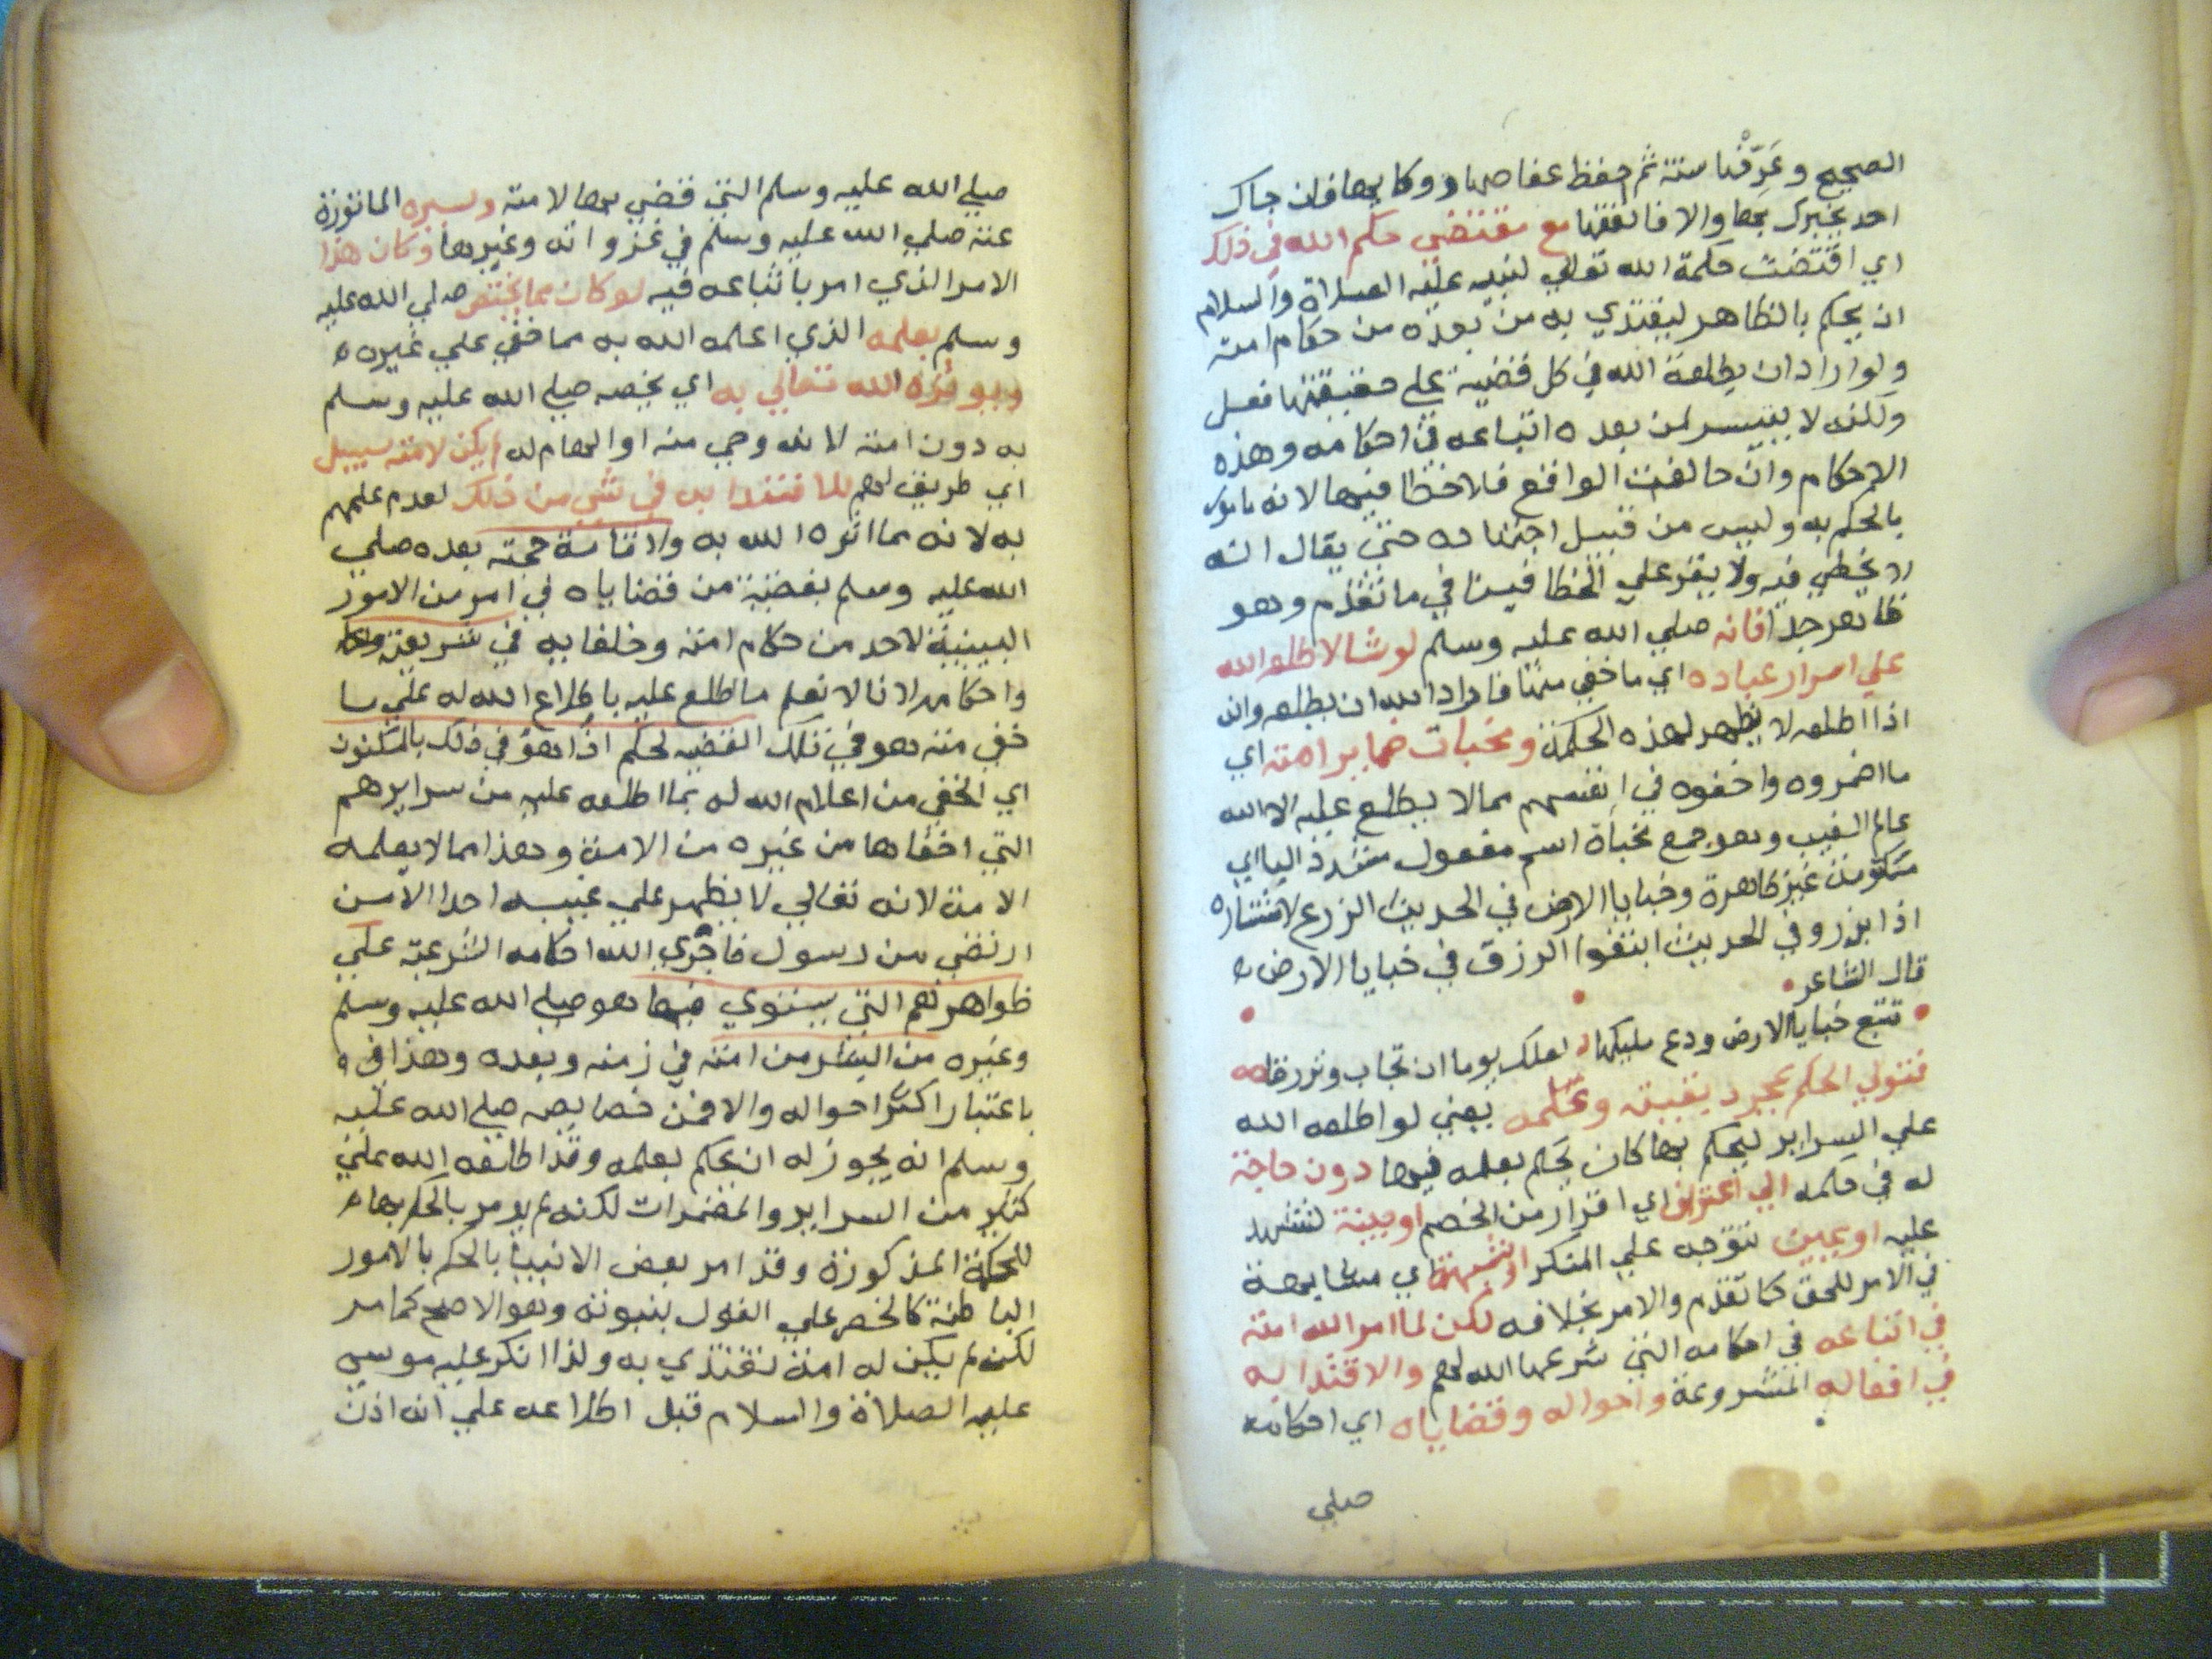 الصحيح وعَرِّفْها سنة ثم احفظ عفاصها ووكا بها فان جاك
احد يخبرك بها والا فانفقها مع مقتضي حكم الله في ذلك
اي اقتضت حكمة الله تعالي لنبيه عليه الصلاة والسلام
ان يحكم بالظاهر ليقتدي به من بعده من حكام امته
ولو اراد ان يطلعه الله في كل قضية علي حقيقتها فعل
ولكنه لا يتيسر لمن بعده اتباعه في احكامه وهذه
الاحكام وان خالفت الواقع فلا خطا فيها لانه مامور
بالحكم به وليس من قبيل اجتهاده حتي يقال انه
لا يخطي فيه ولا يقر علي الخطا فينا في ما تقدم وهو
ظاهر جدا فانه صلي الله عليه وسلم لو شا لاطلعه الله
علي اسرار عباده اي ما خفي منها فاراد الله ان يطلعه وان
اذا اطلعه لا يظهر لهذه الحكمة ومخبات ضمايرامته اي
ما اضمروه واخفوه في انفسهم مما لا يطلع عليه الا الله
عالم الغيب وهو جمع مخبأة اسم مفعول مشدد اليا اي
مكتومة غير ظاهرة وخبايا الارض في الحديث الزرع لاستتاره
اذا بزرو في الحديث ابتغوا الرزق في خبايا الارض
قال الشاعر
تتبع خبايا الارض ودع مليكها لعلك يوما ان تجاب وترزقا
فتولي الحكم بمجرد يقينه وعلمه يعني لو اطلعه الله
علي السراير ليحكم بها كان يحكم بعلمه فيها دون حاجة
له في حكمه الي اعتراف اي اقرار من الخصم او بينة تشهد
عليه او يمين تتوجه علي المنكر او شبهة اي مشابهة
في الامر للحق كما تقدم والامر بخلافه لكن لما امر الله امته
في اتباعه في احكامه التي شرعها الله لهم والاقتدا به
في افعاله المشروعة واحواله وقضاياه اي احكامه
صلي
صلي الله عليه وسلم التي قضي بها لامته وسيره الماثورة
عنه صلي الله عليه وسلم في غزواته وغيرها وكان هذا
الامر الذي امر باتباعه فيه لو كان مما يختص صلي الله عليه
وسلم بعلمه الذي اعلمه الله به مما خفي علي غيره
ويوثره الله تعالي به اي يخصه صلي الله عليه وسلم
به دون امته لانه وحي منه او الهام له لم يكن لامته سبيل
اي طريق لهم للاقتدا به في شي من ذلك لعدم علمهم
به لانه مما اثره الله به ولا قامة حجته بعده صلي
الله عليه وسلم بقضية من قضاياه في امر من الامور
البينية لاحد من حكام امته وخلفايه في شريعته
واحكامه لانا لا نعلم ما اطلع عليه باطلاع الله له علي ما
خفي منه هو في تلك القضيه لحكم اذا هو في ذلك بالمكنون
اي الخفي من اعلام الله له بما اطلعه عليه من سرايرهم
التي اخفاها من غيره من الامة وهذا مما لا يعلمه
الامة لانه تعالي لا يظهر علي غيبه احدا الا من
ارتضي من رسول فاجري الله احكامه الشرعية علي
ظواهرهم التي يستوي فيها هو صلي الله عليه وسلم
وغيره من البشر من امته في زمنه وبعده وهذا في
باعتبار اكثر احواله والا فمن خصايصه صلي الله عليه
وسلم انه يجوز له ان يحكم بعلمه وقد اطلعه الله علي
كثير من السراير والمضمرات لكنه لم يومر بالحكم بها
للحكمة المذكورة وقد امر بعض الانبيا بالحكم بالامور
الباطنة كالخضر علي القول بنبوته وهو الاصح كما مر
لكن لم يكن له امة تقتدي به ولذا انكر عليه موسي
عليه الصلاة والسلام قبل اطلاعه علي انه اذن